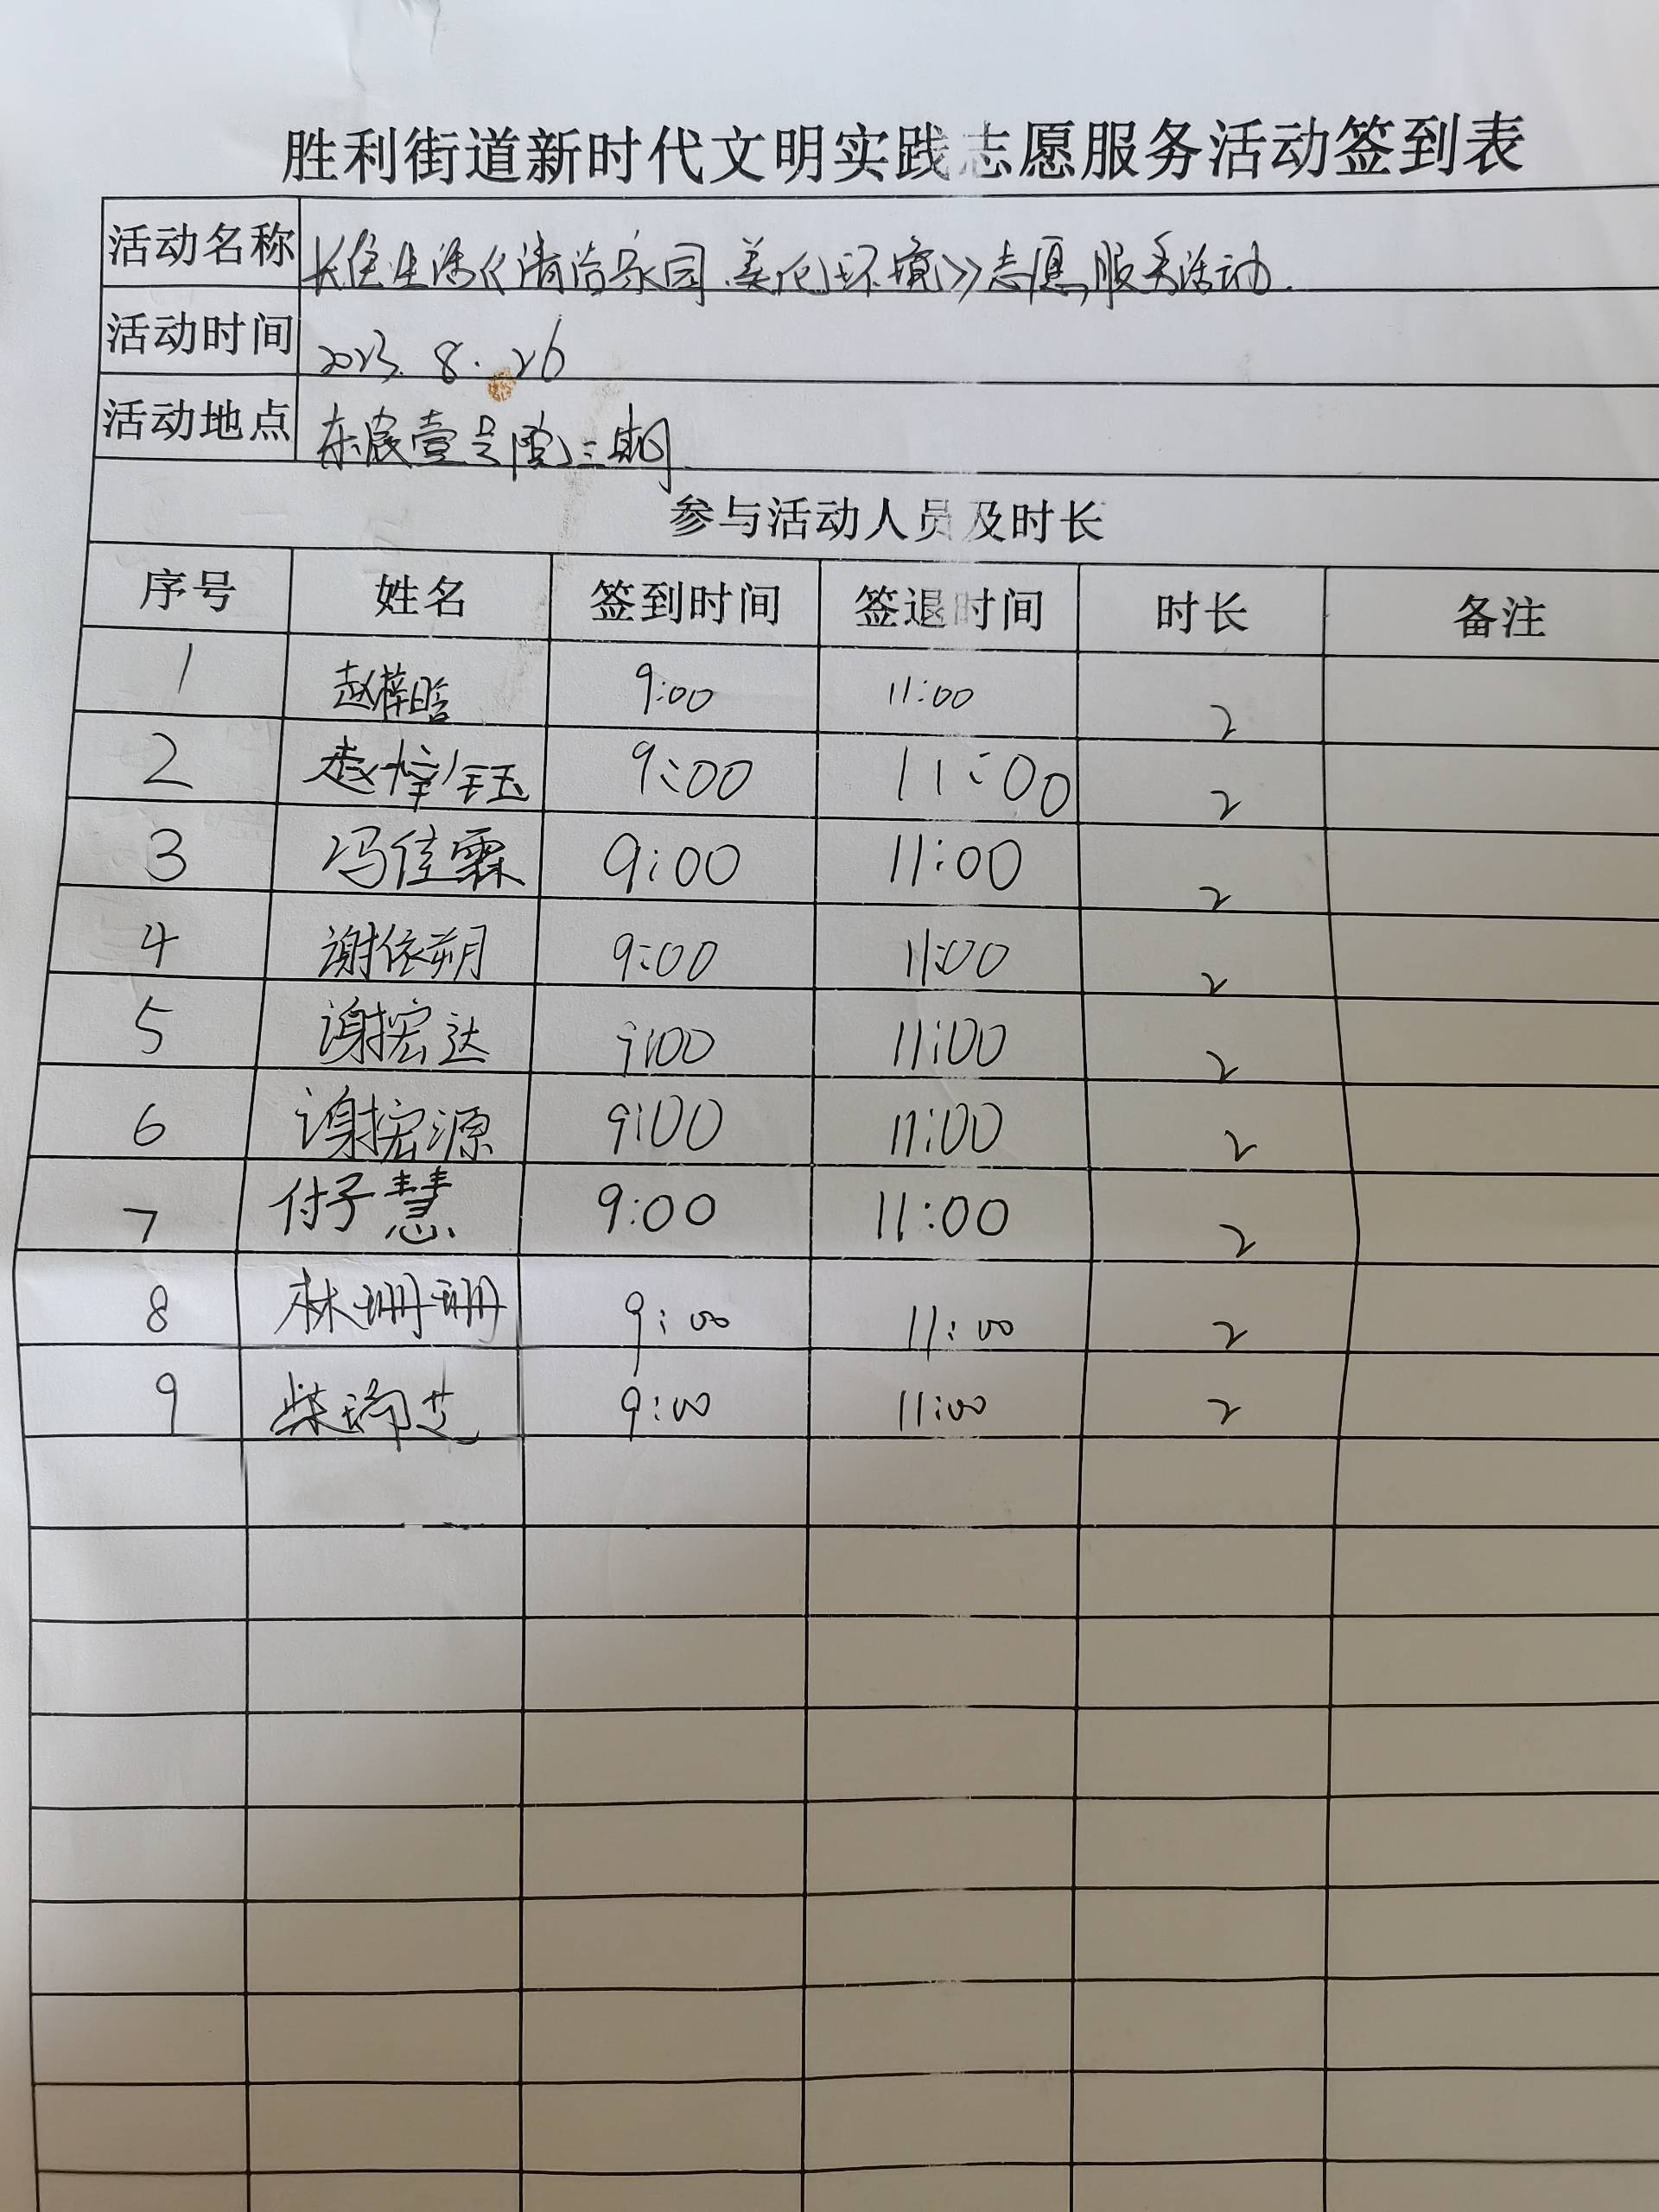 胜利街道新时代文明实践志愿服务活动签到表
活动名称 长住生活《清洁家园.美化环境》志愿服务活动.
活动时间 2023.8.26
活动地点 东宸壹号院三期
参与活动人员及时长
序号 姓名 签到时间 签退时间 时长 备注
1 赵梓晗 9:00 11:00 2
2 赵梓钰 9:00 11:00 2
3 冯佳霖 9:00 11:00 2
4 谢依朔 9:00 11:00 2
5 谢宏达 9:00 11:00 2
6 谢宏源 9:00 11:00 2
7 付子慧 9:00 11:00 2
8 林珊珊 9:00 11:00 2
9 柴瑞芝 9:00 11:00 2